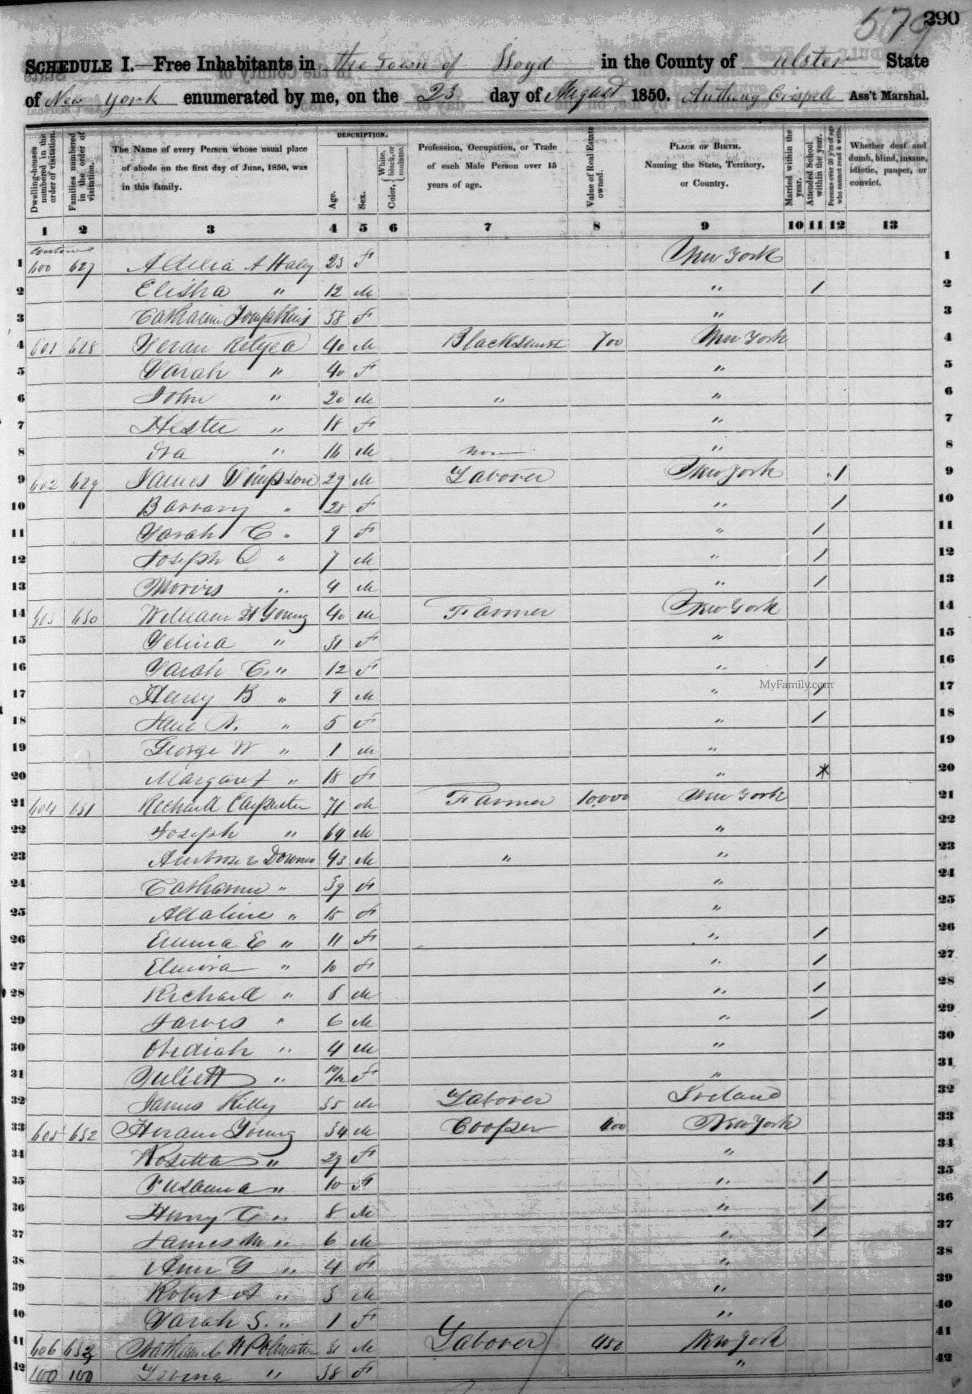 579 290
SCHEDULE I.—Free Inhabitants in the Town of Lloyd in the County of Ulster State
of New York enumerated by me, on the 23 day of August 1850. Anthony Crispell Ass't Marshal.
Dwelling-houses numbered in the order of visitation.
Families numbered in the order of visitation.
The Name of every Person whose usual place of abode on the first day of June, 1850, was in this family.
DESCRIPTION.
Age.
Sex.
Color, White, black, or mulatto.
Profession, Occupation, or Trade of each Male Person over 15 years of age.
Value of Real Estate owned.
PLACE OF BIRTH. Naming the State, Territory, or Country.
Married within the year.
Attended School within the year.
Persons over 20 y'rs of age who cannot read & write.
Whether deaf and dumb, blind, insane, idiotic, pauper, or convict.
1 2 3 4 5 6 7 8 9 10 11 12 13
1 600 627 A Haley 23 F New York 1
2 Elisha " 12 M " / 2
3 Catharine Tompkins 58 F " 3
4 601 628 Relyea 40 M Blacksmith 700 New York 4
5 Sarah " 40 F " 5
6 John " 20 M " " 6
7 Hester " 18 F " 7
8 Ira " 16 M none " 8
9 602 629 James Simpson 29 M Laborer New York / 9
10 Barbary " 28 F " / 10
11 Sarah C " 9 F " / 11
12 Joseph D " 7 M " / 12
13 Morris " 4 M " / 13
14 603 630 William H Young 40 M Farmer New York 14
15 " 31 F " 15
16 Sarah C. " 12 F " / 16
17 Henry B " 9 M " / 17
MyFamily.com
18 Jane A. " 5 F " / 18
19 George W " 1 M " 19
20 Margaret " 18 F " 20
21 604 631 Richard Carpenter 71 M Farmer 10,000 New York 21
22 Joseph " 69 M " 22
23 Ambrose 43 M " " 23
24 Catharine " 39 F " 24
25 Adaline " 15 F " 25
26 Emma E " 11 F " / 26
27 Elmira " 10 F " / 27
28 Richard " 8 M " / 28
29 James " 6 M " / 29
30 Obediah " 4 M " 30
31 Juliett " 10/12 F " 31
32 James Kelly 35 M Laborer Ireland 32
33 605 632 Hiram Young 34 M Cooper 600 New York 33
34 Rosetta " 29 F " 34
35 Susanna " 10 F " / 35
36 Henry C " 8 M " / 36
37 James M " 6 M " / 37
38 Ann G " 4 F " 38
39 Robert A " 3 M " 39
40 Sarah S. " 1 F " 40
41 606 633 31 M Laborer 450 New York 41
42 100 100 " 38 F " 42